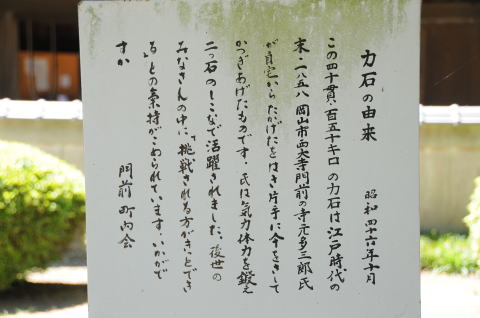 力石の由来
昭和四十六年十月
この四十貫、百五十キロの力石は江戸時代の
末・一八五八 岡山市西大寺門前の寺元多三郎氏
が自宅からたかげたをはき片手に傘をさして
かつぎあげたものです。氏は気力体力を鍛え
二つ石のしこなで活躍されました。後世の
みなさんの中に、「挑戦される方がきっとでき
る」との気持がこめられています。いかがで
すか
門前町内会